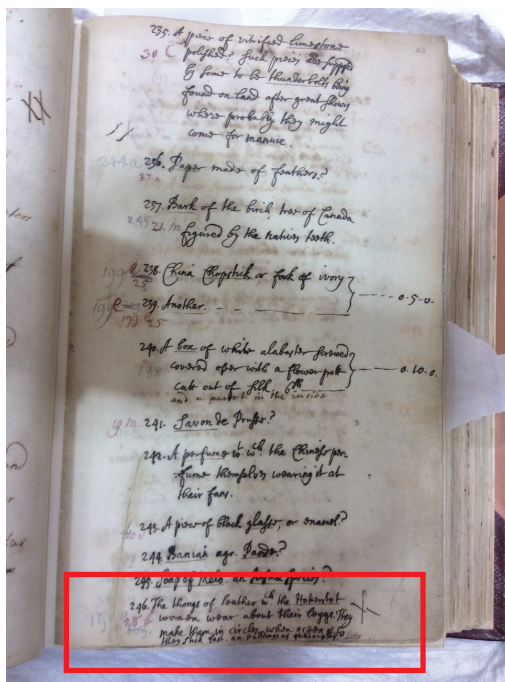 235. A piece of vitrified limestone
30 C polished? Such pieces are
by some to be thunderbolts being
found on land after great showrs
where probably they might
come for manure.
244a 236. Paper made of feathers?
237. Bark of the birch tree of Canada
21. m figured by the natives teeth.
238. China Chopstick or fork of ivory
25
0.5.0.
239. Another.
25
240. A box of white alabaster screwed
covered over with a flower pott
0.10.0.
cutt out of silk
and a parrot in the inside
241. Savon de Prusse?
242. A perfume wt. wch. the Chinese per-
fume themselves wearing it at
their fans.
243. A piece of black glasse, or enamel?
244. Banian agr. Paode?
245. Soap of
246. The thongs of leather wch the Hotentot
women wear about their leggs. They
make them in circles when green & so
they stick fast.